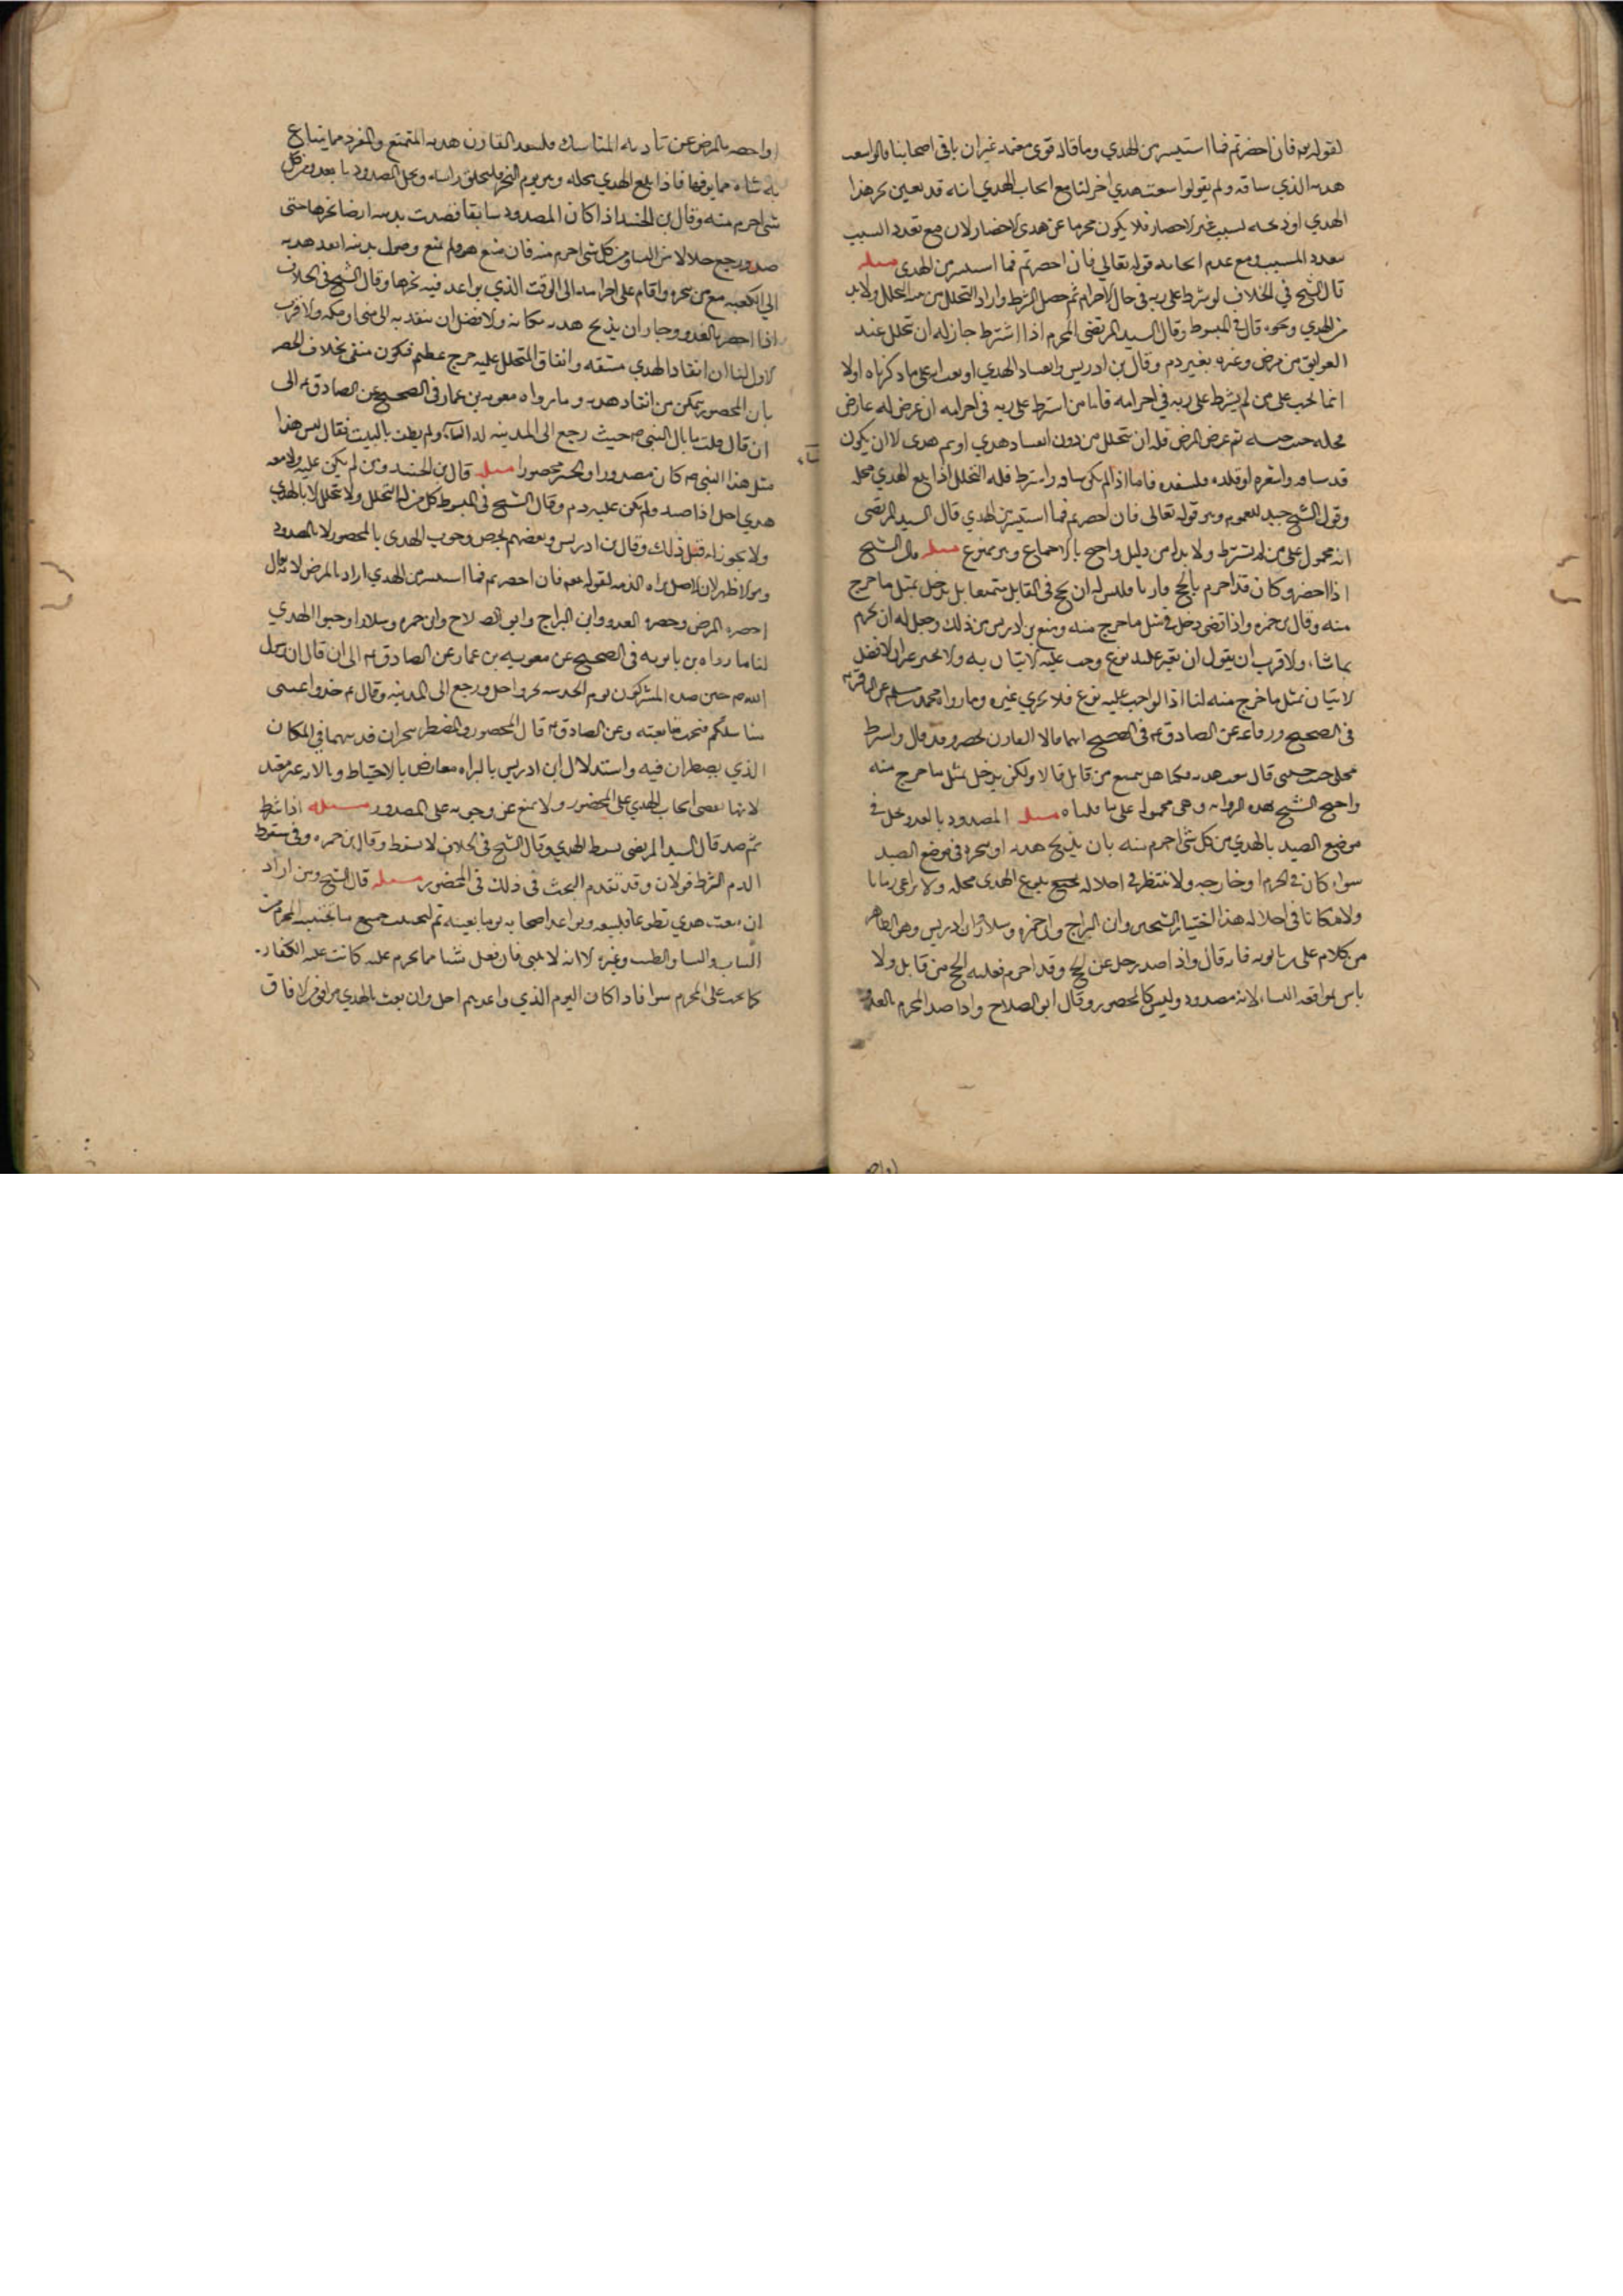 لقوله تع فان احصرتم فما استيسر من الهدي وما قاله قوي معتمد غير ان باقي اصحابنا قالوا يبعث
هديه الذي ساقه ولم يقولوا يبعث هدي اخر لنا مع ايجاب الهدي انه قد يعين نحر هذا
الهدي او ذبحه بسبب غير الاحصار فلا يكون مجزيا عن هدي الاحصار لان مع تعدد السبب
يتعدد المسبب ومع عدم ايجابه قوله تعالى فان احصرتم فما استيسر من الهدي مسله
قال الشيخ في الخلاف لو شرط على ربه في حال الاحرام ثم حصل الشرط واراد التحلل من نية التحلل ولا بد
من الهدي ونحوه قال في المبسوط وقال السيد المرتضى المحرم اذا اشترط جاز له ان يتحلل عند
العوايق من مرض وغيره بغير دم وقال بن ادريس وانفاد الهدي او بعث على ما ذكرناه اولا
انما يجب على من لم يشرط على ربه في احرامه فاما من اشترط على ربه في احرامه ان عرض له عارض
فحله حيث حبسه ثم عرض المرض فله ان يتحلل من دون انفاد هدي او ثم هدي الا ان يكون
قد ساقه واشعره او قلده فلينفده فاما اذا لم يكن ساقه واشترط فله التحلل اذا بلغ الهدي محله
وقول الشيخ جيد للعموم وهو قوله تعالى فان احصرتم فما استيسر من الهدي قال السيد المرتضى
انه محمول على من لم يشترط ولا بد له من دليل واحتج بالاجماع وهو ممنوع مسله قال الشيخ
اذا احصر وكان قد احرم بالحج قارنا فليس له ان يحج في القابل متمتعا بل يدخل بمثل ما خرج
منه وقال بن حمزه واذا قضى دخل في مثل ما خرج منه ومنع بن ادريس من ذلك وجعل له ان يحرم
بما شاء والاقرب ان يقول ان تعين عليه نوع وجب عليه الاتيان به والا تخير غير ان الافضل
الاتيان بمثل ما خرج منه لنا اذا الواجب عليه نوع فلا يجزي غيره وما رواه محمد بن مسلم عن الباقر ع
في الصحيح ورفاعة عن الصادق ع في الصحيح انهما قالا القارن يحصر وقد قال واشترط
فحلي حيث حبستني قال يبعث هديه قلنا هل يتمتع من قابل قالا ولكن يدخل بمثل ما خرج منه
واحتج الشيخ بهذه الروايه وهي محمولة على ما قلناه مسله المصدود بالعدو يحل في
موضع الصد بالهدي من كل شي احرم منه بان يذبح هديه او ينحره في موضع الصد
سواء كان في الحرم او خارجه ولا ينتظر في احلاله بلوغ الهدي محله ولا يراعي زمانا
ولا مكانا في احلاله هذا اختيار الشيخين وابن البراج وابن حمزه وسلار وابن ادريس وهو الظاهر
من كلام علي بن بابويه فانه قال واذا صد رجل عن الحج وقد احرم فعليه الحج من قابل ولا
باس بمواقعة النساء لانه مصدود وليس كالمحصور وقال ابو الصلاح واذا صد المحرم بالعدو
او احصر بالمرض عن تادية المناسك فلينفد القارن هديه والمتمتع والمفرد ما يبتاع
به شاة فما فوقها فاذا بلغ الهدي محله وهو يوم النحر فليحلق راسه ويحل المصدود بالعدو من كل
شي احرم منه وقال بن الجنيد اذا كان المصدود سايقا فصدت بدنته ايضا نحرها حيث
صد ورجع حلالا من النساء ومن كل شي احرم منه فان منع هو ولم يمنع وصول بدنته انفد هديه
الى الكعبة مع من ينحره واقام على احرامه الى الوقت الذي يواعد فيه نحرها وقال الشيخ في الخلاف
اذا احصر بالعدو وجاز ان يذبح هديه مكانه والافضل ان ينفد به الى منى او مكه والاقرب
الاول لنا ان انفاد الهدي مشقه وانفاق المتحلل عليه حرج عظيم فيكون منفى بخلاف الحصر
بان المحصور يتمكن من انفاد هديه وما رواه معويه بن عمار في الصحيح عن الصادق ع الى
ان قال قلت ما بال النبي ص حيث رجع الى المدينه حل له النساء ولم يطف بالبيت فقال ليس هذا
مثل هذا النبي ص كان مصدودا والحسين محصورا مسله قال بن الجنيد ومن لم يكن عليه ولا معه
هدي احل اذا صد ولم يكن عليه دم وقال الشيخ في المبسوط كل من له التحلل ولا يتحلل الا بالهدي
ولا يجوز له قبل ذلك وقال بن ادريس وبعضهم يخص وجوب الهدي بالمحصور لا بالمصدود
وهو الاظهر لان الاصل براءة الذمه لقوله تعم فان احصرتم فما استيسر من الهدي اراد بالمرض لانه يقال
احصره المرض وحصره العدو وابن البراج وابو الصلاح وابن حمزه وسلار اوجبوا الهدي
لنا ما رواه بن بابويه في الصحيح عن معويه بن عمار عن الصادق ع الى ان قال ان رسول
الله ص حين صده المشركون يوم الحديبيه نحر واحل ورجع الى المدينه وقال ع خذوا عني
مناسككم فتجب متابعته وعن الصادق ع قال المحصور والمضطر ينحران بدنتهما في المكان
الذي يضطران فيه واستدلال ابن ادريس بالبراه معارض بالاحتياط وبالايه غير مفيد
لانها تعطي ايجاب الهدي على المحصور ولا يمنع عن وجوبه على المصدور مسله اذا شرط
ثم صد قال السيد المرتضى يسقط الهدي وقال الشيخ في الخلاف لا يسقط وقال بن حمزه وفي سقوط
الدم بالشرط قولان وقد تقدم البحث في ذلك في المحصور مسله قال الشيخ ومن اراد
ان يبعث هدي تطوعا فليبعثه ويواعد اصحابه يوما بعينه ثم ليجتنب جميع ما يجتنبه المحرم من
الثياب والنساء والطيب وغيره الا انه لا يلبي فان فعل شيئا مما يحرم عليه كانت عليه الكفاره
كما يجب على المحرم سوا فاذا كان اليوم الذي واعدهم احل وان بعث بالهدي من افق من الافاق